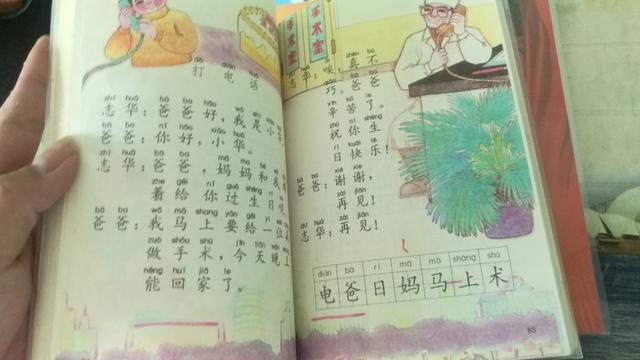 dǎ diàn huà
打 电 话
zhì huá bà ba hǎo wǒ shì xiǎo
志华：爸爸好，我是小
bà ba nǐ hǎo xiǎo huá
爸爸：你好，小华。
zhì huá bà ba mā ma hé wǒ
志华：爸爸，妈妈和我
zhe gěi nǐ guò shēng rì
着给你过生日呢。
bà ba wǒ mǎ shang yào gěi yí wèi
爸爸：我马上要给一位
zuò shǒu shù jīn tiān wǎn shang
做手术，今天晚上
néng huí jiā le
能回家了。
手术室
手术室
zhì huá zhēn bù
志华：唉，真不
qiǎo bà ba
巧。爸爸
xīn kǔ le
辛苦了。
zhù nǐ shēng
祝你生
rì kuài lè
日快乐！
bà ba xiè xie
爸爸：谢谢，
zài jiàn
再见！
zhì huá zài jiàn
志华：再见！
diàn bà rì mā mǎ shàng shù
电 爸 日 妈 马 上 术
85